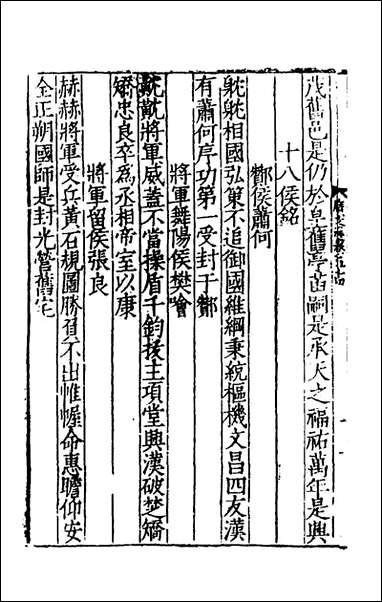 茂舊邑是仍於皇舊亭苗嗣是承天之福祐萬年是興
十八侯銘
酇侯蕭何
躭躭相國弘策不追御國維綱秉統樞機文昌四友漢
有蕭何序功第一受封于酇
將軍舞陽侯樊噲
䟫䟫將軍威蓋不當操盾千鈞拔主項堂興漢破楚矯
矯忠良卒爲丞相帝室以康
將軍留侯張良
赫赫將軍受兵黃石規圖勝負不出帷幄命惠瞻仰安
全正朔國師是封光營舊宅